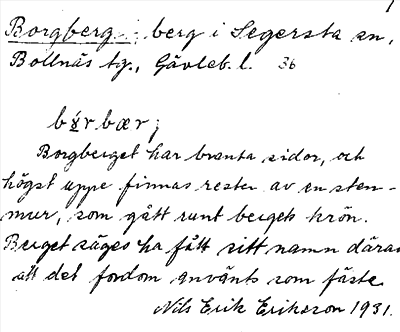 Borgberg : berg i Segersta sn,
Bollnäs tg., Gävleb. l. 36
Borgberget har branta sidor, och
högst uppe finnas rester av en sten-
mur, som gått runt bergets krön.
Berget säges ha fått sitt namn därav
att det fordom använts som fäste.
Nils Erik Erikson 1931.